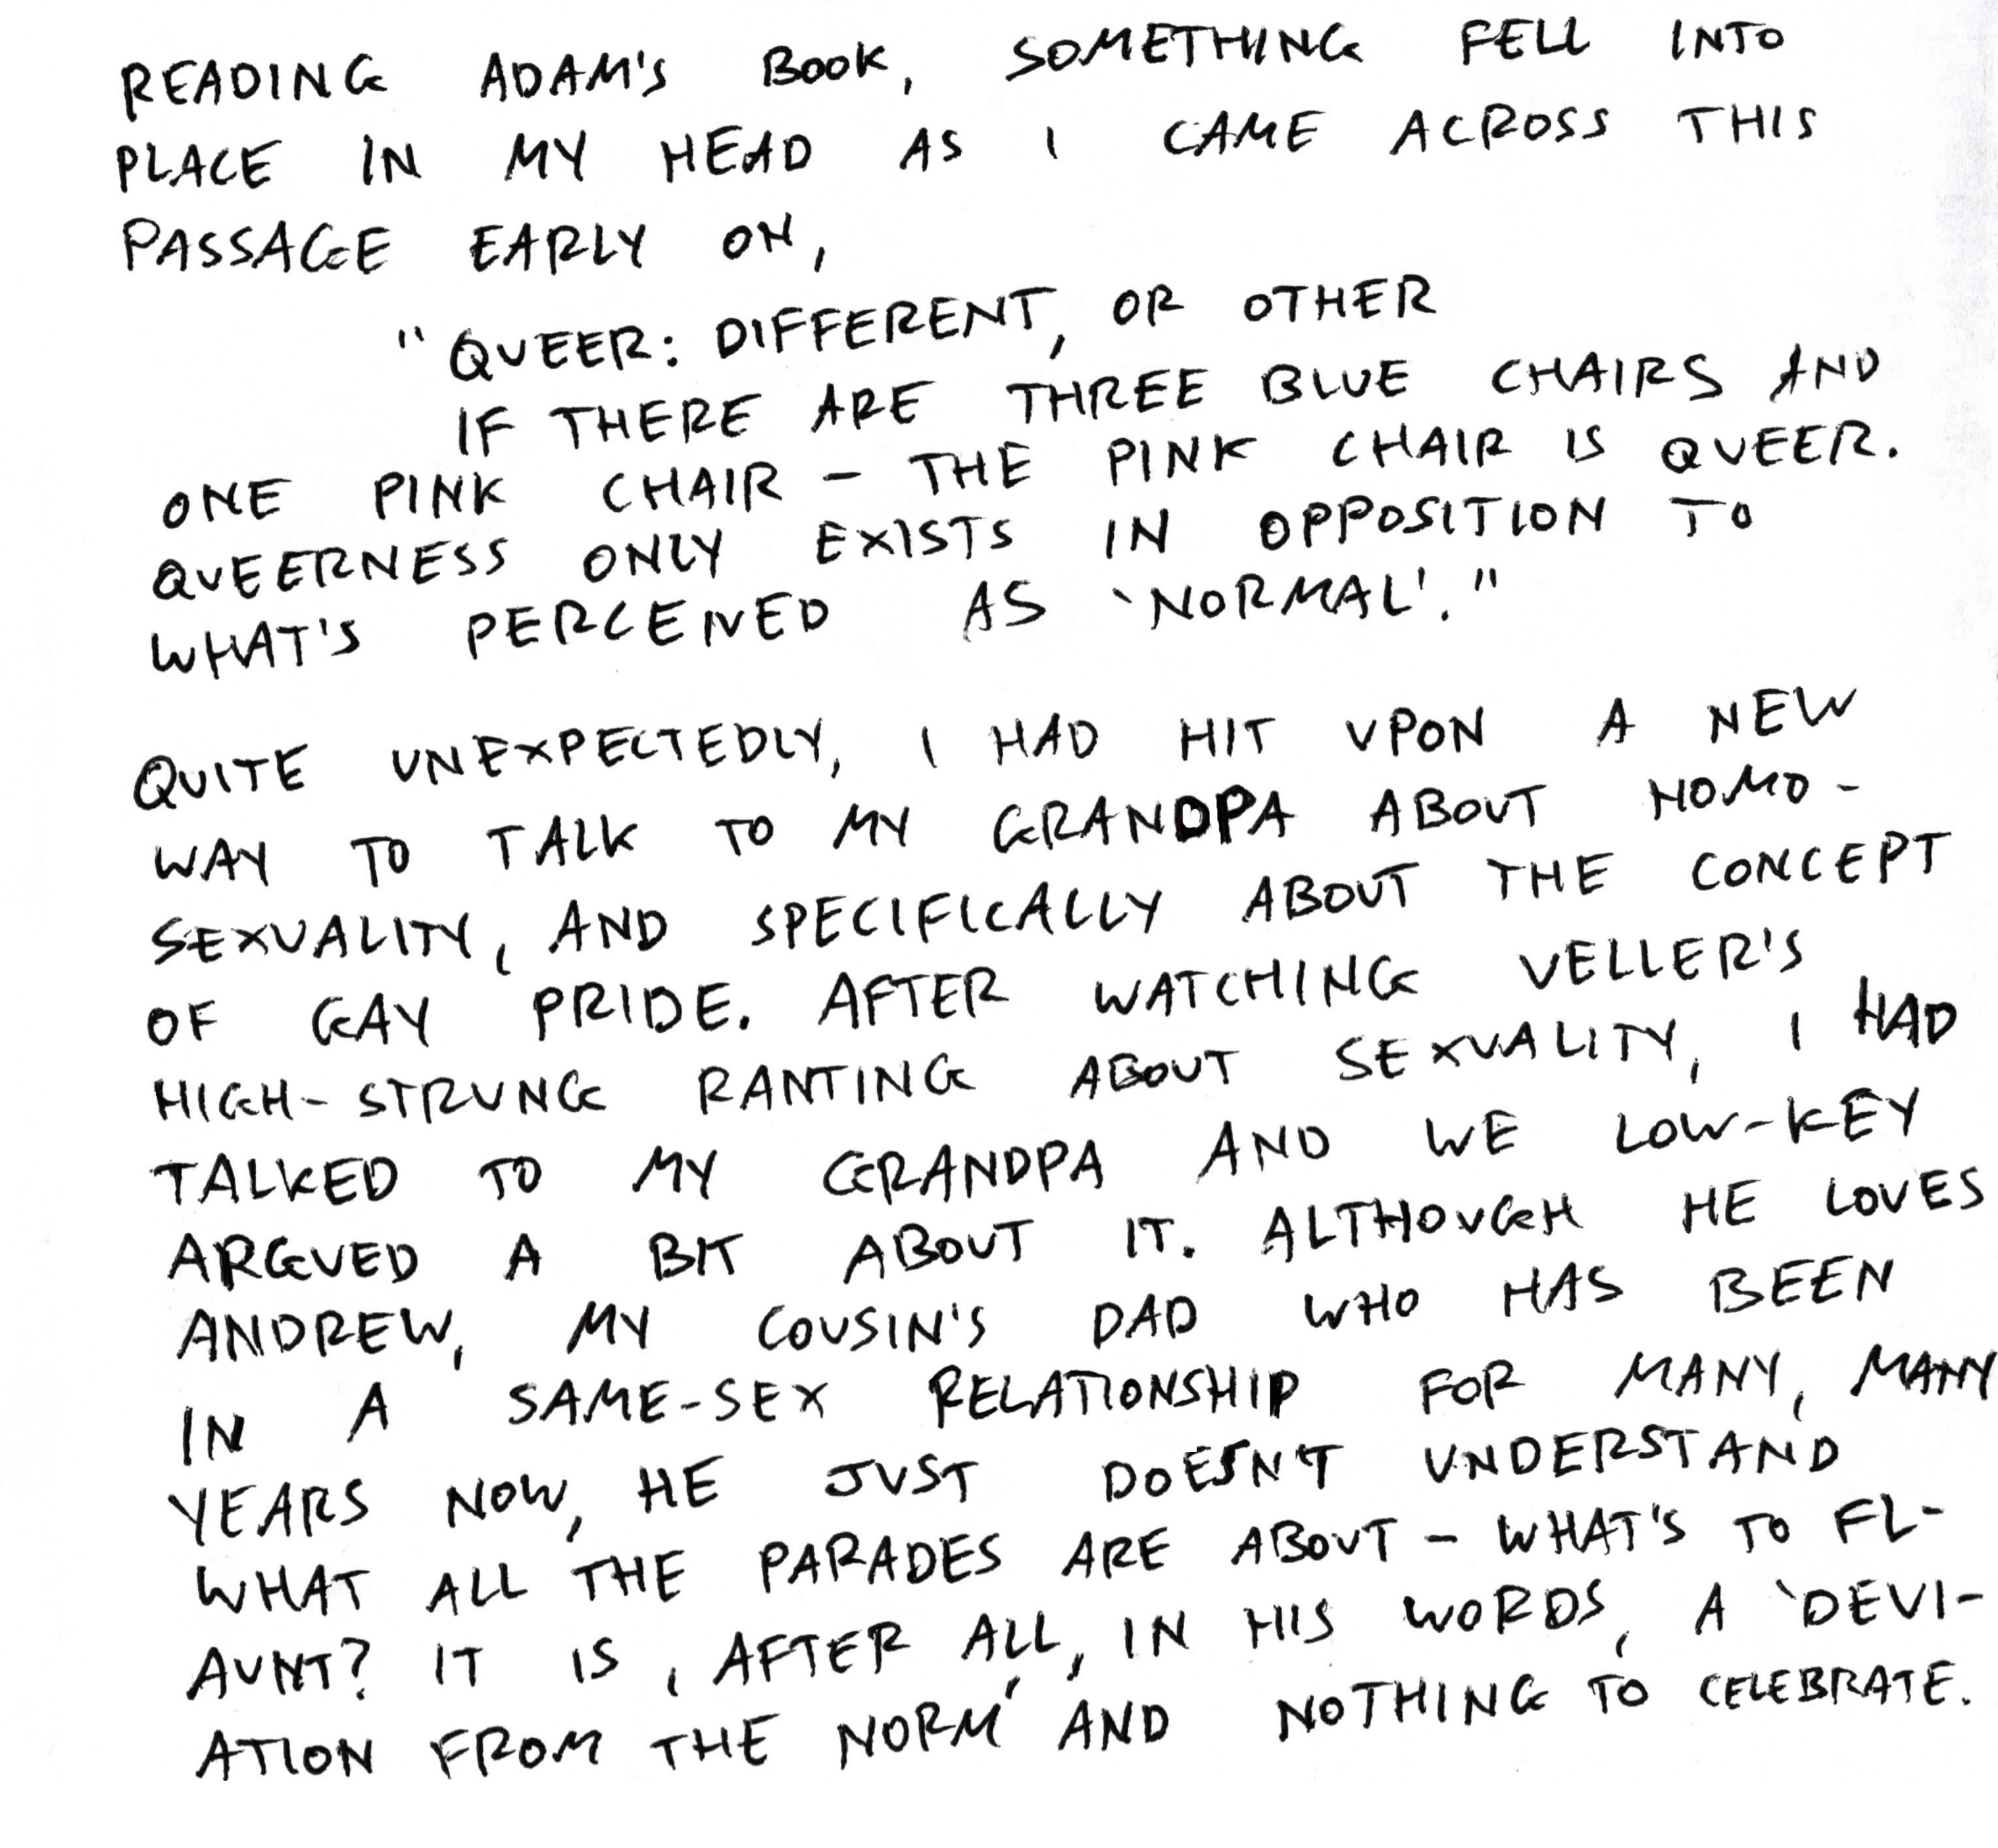 READING ADAM'S BOOK, SOMETHING FELL INTO
PLACE IN MY HEAD AS I CAME ACROSS THIS
PASSAGE EARLY ON,
"QUEER: DIFFERENT, OR OTHER
IF THERE ARE THREE BLUE CHAIRS AND
ONE PINK CHAIR – THE PINK CHAIR IS QUEER.
QUEERNESS ONLY EXISTS IN OPPOSITION TO
WHAT'S PERCEIVED AS 'NORMAL'."
QUITE UNEXPECTEDLY, I HAD HIT UPON A NEW
WAY TO TALK TO MY GRANDPA ABOUT HOMO-
SEXUALITY, AND SPECIFICALLY ABOUT THE CONCEPT
OF GAY PRIDE. AFTER WATCHING VELLER'S
HIGH-STRUNG RANTING ABOUT SEXUALITY, I HAD
TALKED TO MY GRANDPA AND WE LOW-KEY
ARGUED A BIT ABOUT IT. ALTHOUGH HE LOVES
ANDREW, MY COUSIN'S DAD WHO HAS BEEN
IN A SAME-SEX RELATIONSHIP FOR MANY, MANY
YEARS NOW, HE JUST DOESN'T UNDERSTAND
WHAT ALL THE PARADES ARE ABOUT – WHAT'S TO FL-
AUNT? IT IS, AFTER ALL, IN HIS WORDS, A 'DEVI-
ATION FROM THE NORM' AND NOTHING TO CELEBRATE.